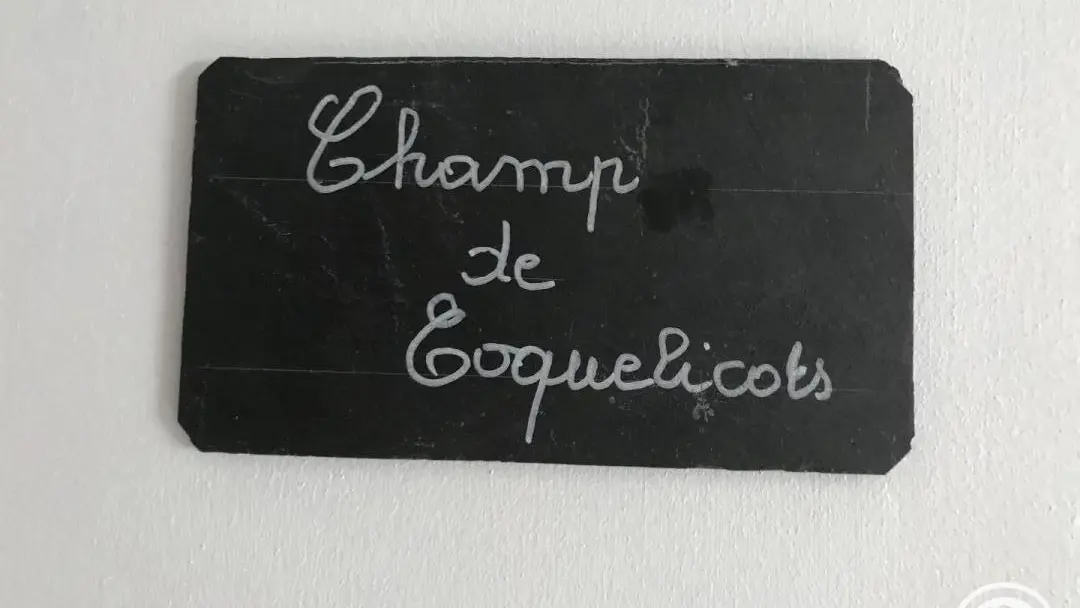 Champ
de
Coquelicots